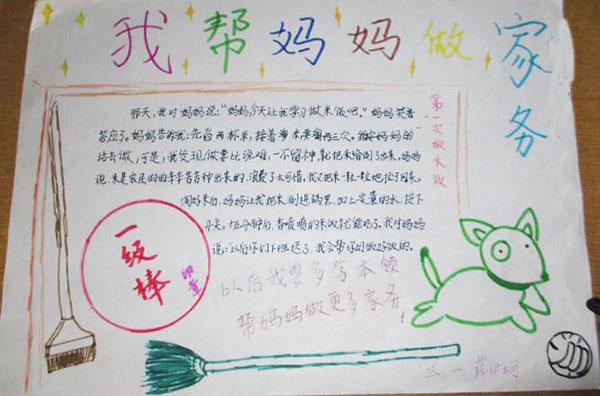 我帮妈妈做家务
第一次做米饭
那天，我对妈妈说：“妈妈今天让我学习做米饭吧。”妈妈笑着
答应了。妈妈告诉我：先舀两杯米，接着要淘两三次。我按妈妈的
话去做，可是，我发现做要比说难，一不留神，就把米给倒了出来，妈妈
说，米是农民伯伯辛辛苦苦种出来的，浪费了太可惜。我又把米一粒一粒地捡了回来。
淘好米后，妈妈让我把米倒进锅里，加上一定量的水，按下
开关。十五分钟后，香喷喷的米饭就能吃了。我对妈妈
说：以后你们下班迟了，我会帮你们做好饭的。
一级棒
以后我要多学本领
帮妈妈做更多家务！
三、一